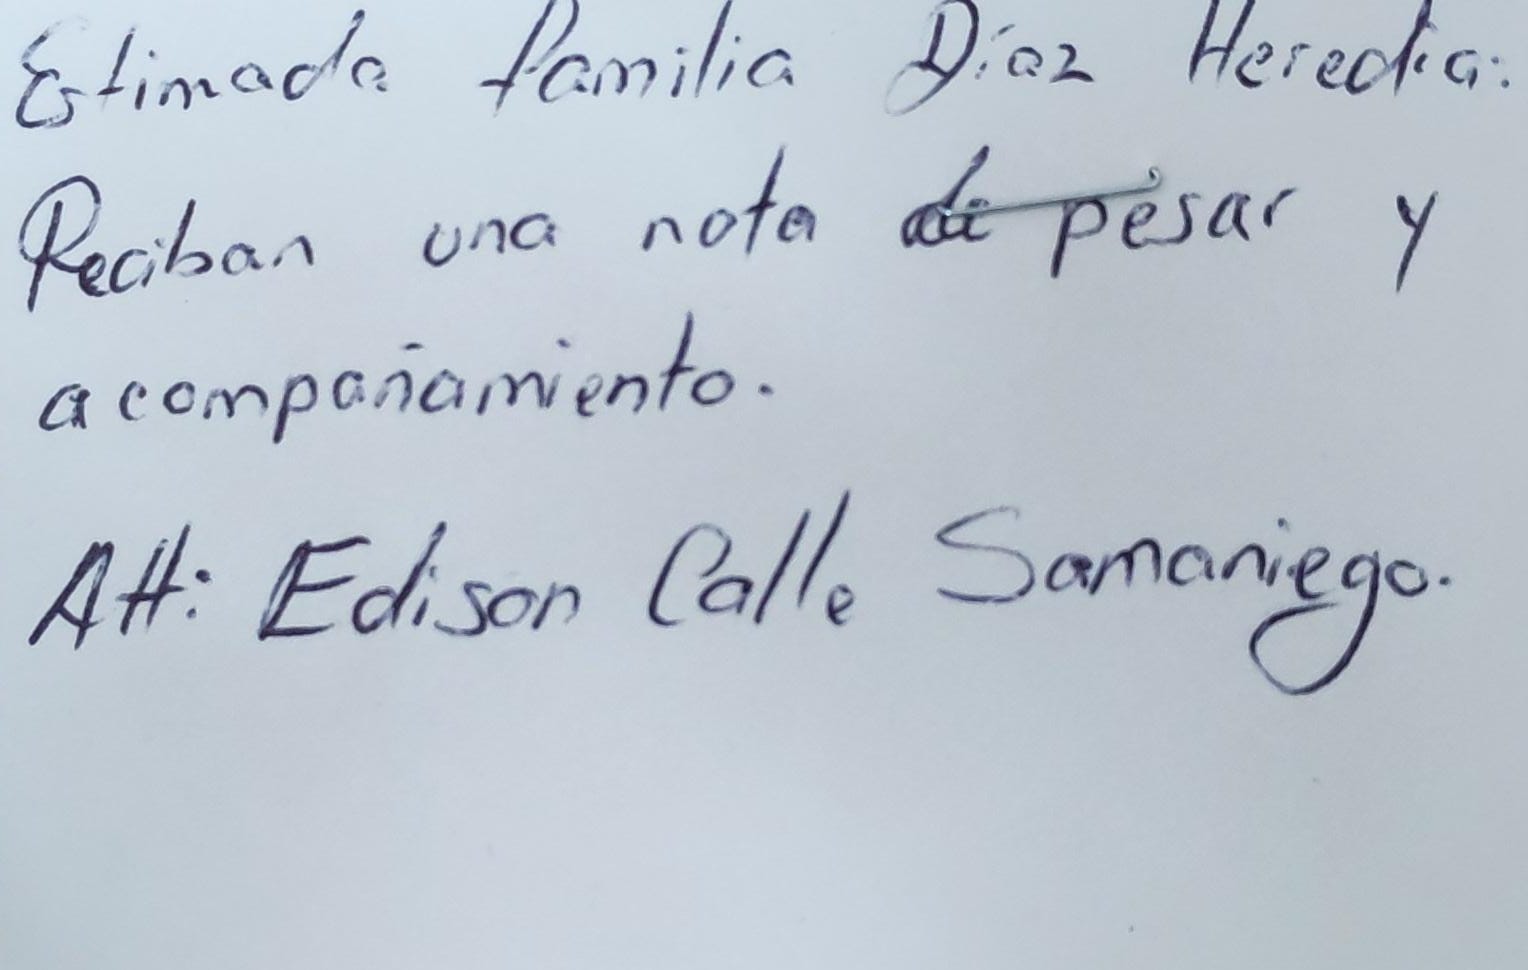 Estimada familia Díaz Heredia:
Reciban una nota de pesar y
acompañamiento.
Att: Edison Calle Samaniego.